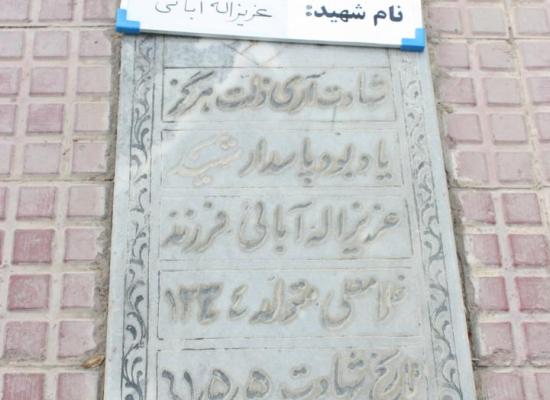 نام شهید: عزیزاله آبائی
شهادت آری ذلت هرگز
یادبود پاسدار شهید
عزیزاله آبائی فرزند
غلامعلی متولد ١٣٣٤
تاریخ شهادت ٦١٫٥٫٥